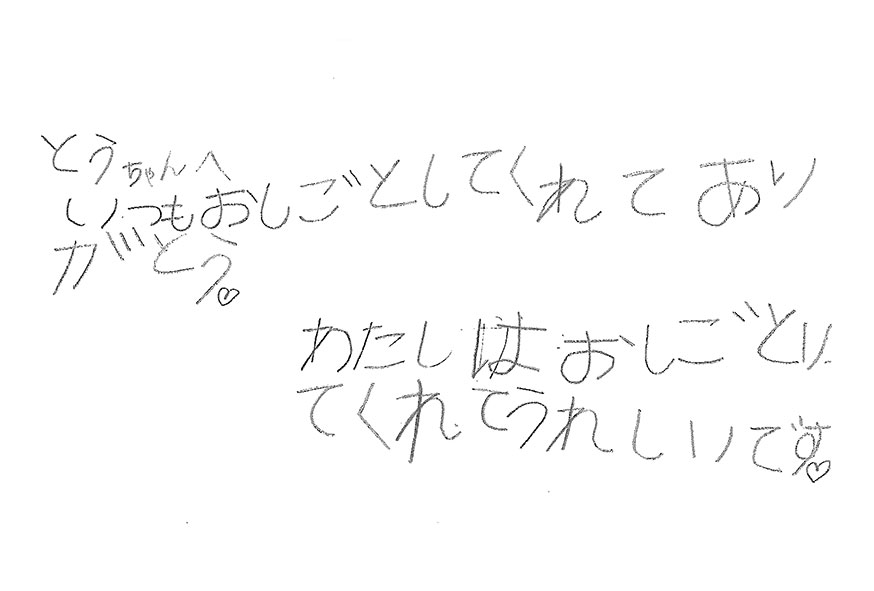 とうちゃんへ
いつもおしごとしてくれてあり
がとう♡
わたしはおしごとし
てくれてうれしいです♡